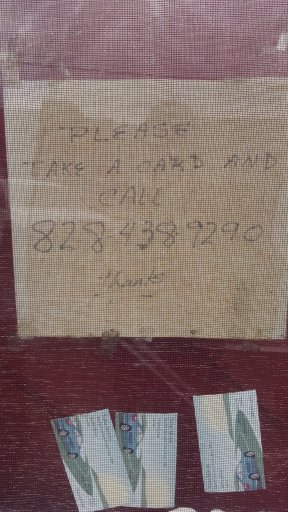 PLEASE
TAKE A CARD AND
CALL
828-438-9290
Thanks